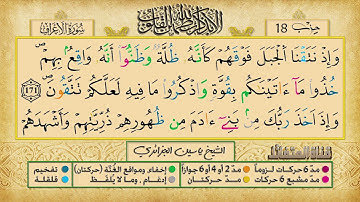 سورة الأعراف
ألا بذكر الله تطمئن القلوب
حزب 18
وَإِذ نَّتَقْنَا ٱلْجَبَلَ فَوْقَهُمْ كَأَنَّهُۥ ظُلَّةٌ وَظَنُّوٓا۟ أَنَّهُۥ وَاقِعٌۢ بِهِمْ
خُذُوا۟ مَآ ءَاتَيْنَٰكُم بِقُوَّةٍ وَٱذْكُرُوا۟ مَا فِيهِ لَعَلَّكُمْ تَتَّقُونَ 171
وَإِذْ أَخَذَ رَبُّكَ مِنۢ بَنِىٓ ءَادَمَ مِن ظُهُورِهِمْ ذُرِّيَّتَهُمْ وَأَشْهَدَهُمْ
الشيخ ياسين الجزائري
مدّ 6 حركات لزوماً مدّ 2 أو 4 أو 6 جوازاً إخفاء ومواقع الغُنَّة (حركتان) تفخيم
مدّ مشبع 6 حركات مدّ حركتان إدغام، وما لا يُلفظ قلقلة